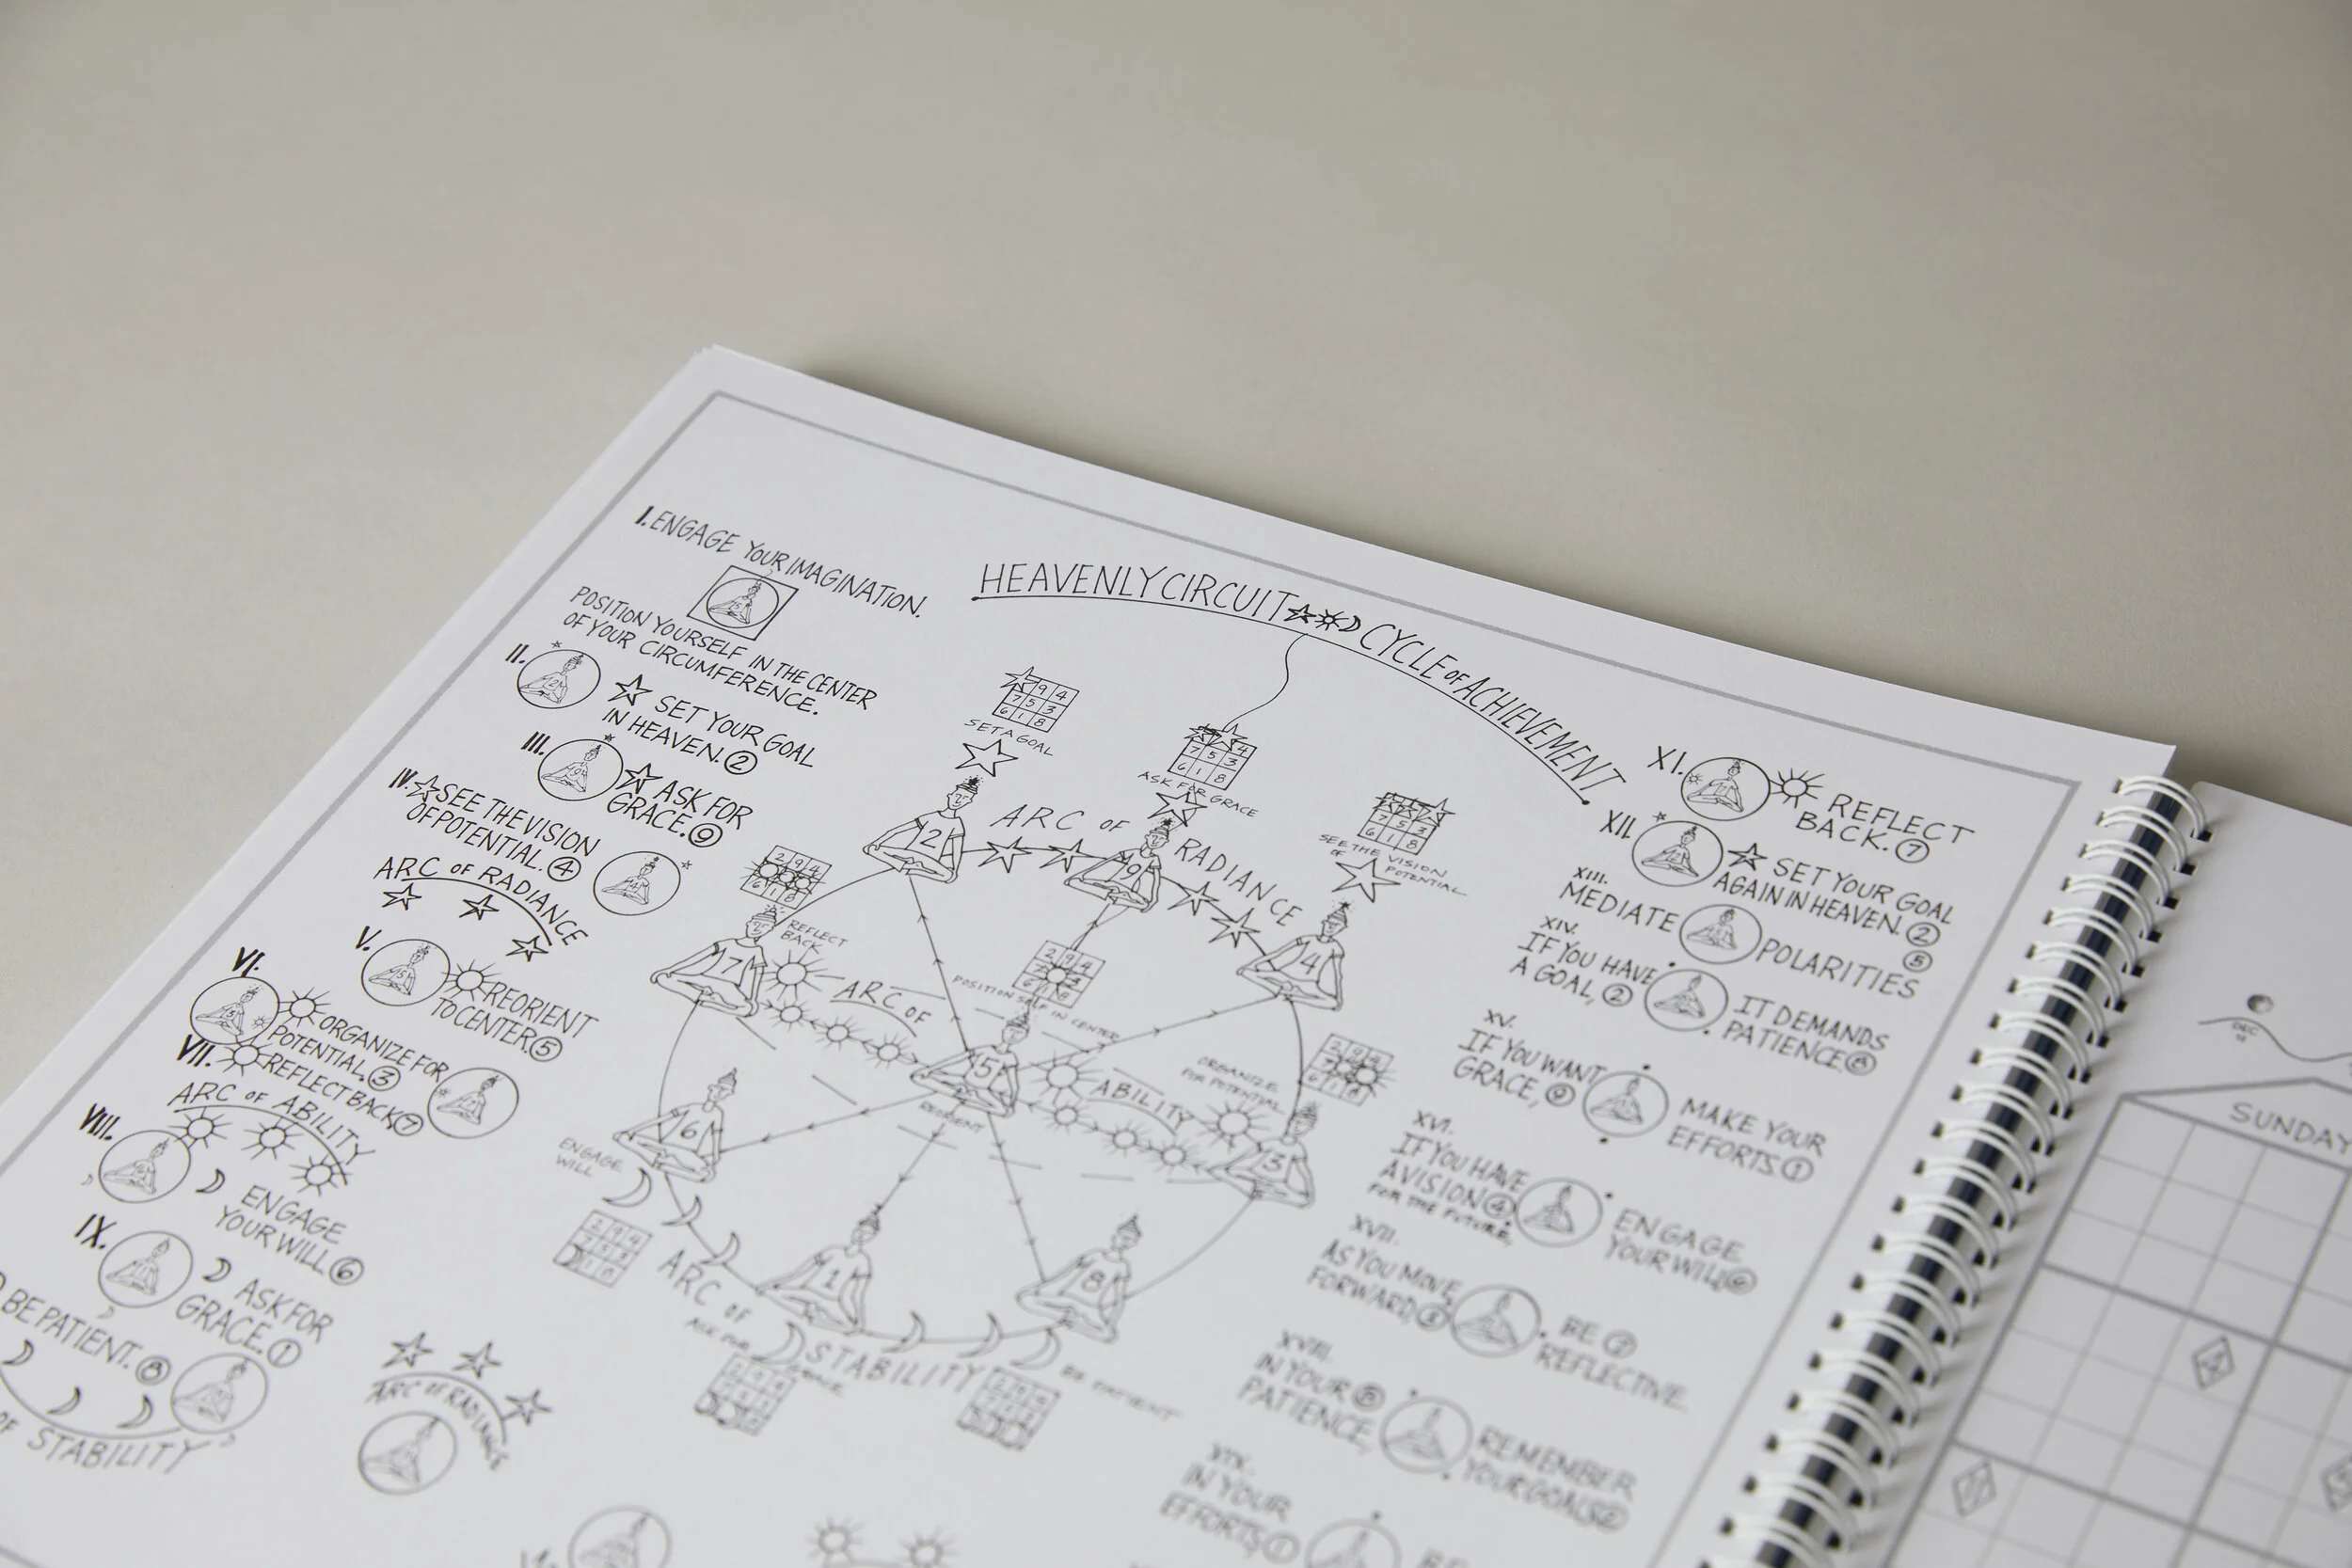 HEAVENLY CIRCUIT CYCLE OF ACHIEVEMENT
I. ENGAGE YOUR IMAGINATION.
POSITION YOURSELF IN THE CENTER
OF YOUR CIRCUMFERENCE.
II.
SET YOUR GOAL
IN HEAVEN. 2
III.
ASK FOR
GRACE. 9
IV. SEE THE VISION
OF POTENTIAL. 4
ARC OF RADIANCE
V.
REORIENT
TO CENTER. 5
VI.
ORGANIZE FOR
POTENTIAL. 3
VII. REFLECT BACK 7
ARC OF ABILITY
VIII.
ENGAGE
YOUR WILL 6
IX.
ASK FOR
GRACE. 1
BE PATIENT. 8
OF STABILITY
ARC OF RADIANCE
2 9 4
7 5 3
6 1 8
SET A GOAL
2
ARC OF RADIANCE
7 5 3
6 1 8
ASK FOR GRACE
9
7 5 3
6 1 8
SEE THE VISION
OF POTENTIAL
4
2 9 4
6 1 8
REFLECT
BACK
7
ARC OF
ABILITY
2 9 4
6 1 8
POSITION SELF IN CENTER
5
REORIENT
ORGANIZE
FOR POTENTIAL
2 9 4
6 1 8
3
ENGAGE
WILL
6
ARC OF
STABILITY
1
ASK FOR
GRACE
8
BE PATIENT
XI.
REFLECT
BACK. 7
XII.
SET YOUR GOAL
AGAIN IN HEAVEN. 2
XIII.
MEDIATE POLARITIES 5
XIV.
IF YOU HAVE
A GOAL, 2
IT DEMANDS
PATIENCE 8
XV.
IF YOU WANT
GRACE, 9
MAKE YOUR
EFFORTS 1
XVI.
IF YOU HAVE
A VISION 4
FOR THE FUTURE,
ENGAGE
YOUR WILL 6
XVII.
AS YOU MOVE
FORWARD, 3
BE 7
REFLECTIVE.
XVIII.
IN YOUR 8
PATIENCE,
REMEMBER
YOUR GOALS 2
XIX.
IN YOUR
EFFORTS 1
DEC
SUNDAY